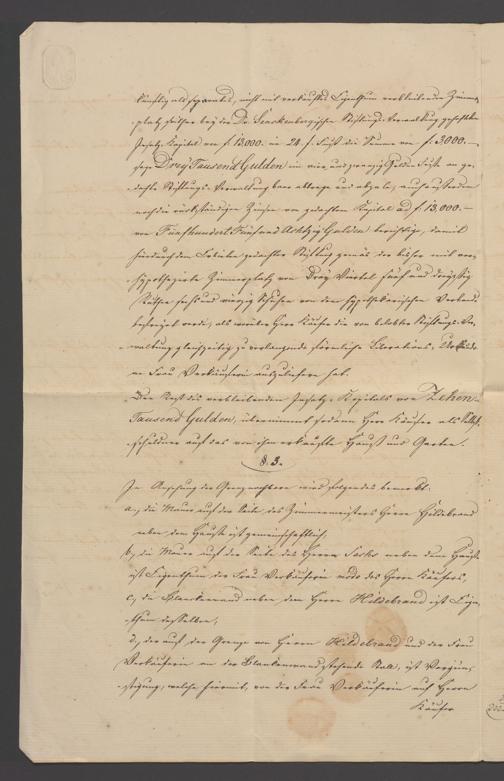 künftig als separates, nicht mit verkauftes Eigenthum verbleibenden Zimmer-
platz, bisher bey der Dr. Senckenbergischen Stiftungs-Verwaltung gehafteten
Insatz-Kapital von f. 13,000.- im 24 f. Fuß die Summe von f. 3000.-
sage Drey Tausend Gulden im vier und zwanzig Gulden Fuß an ge-
dachte Stiftungs-Verwaltung baar ablege und abzale, auch außerdem
noch die rückständigen Zinsen von gedachtem Kapital ad f. 13,000.-
von Fünfhundert Fünf und Achtzig Gulden berichtige, damit
hierdurch dem gedachter Stiftung gemäs der bisher mit ver-
hypothezirte Zimmerplatz von Drey Viertel fünf und dreyßig
Ruthen sechs und vierzig Schuhen von dem hypothekarischen Verbande
befreyet werde, als worüber Herr Käufer die von belobter Stiftungs-Ver-
waltung gleichzeitig zu verlangende förmliche Liberations-Urkunde
an Frau Verkäuferin auszuliefern hat.
Den Rest des verbleibenden Insatz-Kapitals von Zehen-
Tausend Gulden, übernimmt sodann Herr Käufer als Selbst-
schuldner auf das von ihm erkaufte Hauß und Garten.
§. 3.
In Ansehung der Grenznachbarn wird folgendes bemerkt.
a., die Mauer auf der Seite des Zimmermeisters Herrn Hildebrand
neben dem Hauße ist gemeinschaftlich,
b., die Mauer auf der Seite des Herrn neben dem Hauße
ist Eigenthum der Frau Verkäuferin modo des Herrn Käufers,
c., die Blankenwand neben dem Herrn Hildebrand ist Eigen-
thum desselben,
d., der auf der Grenze von Herrn Hildebrand und der Frau
Verkäuferin an der Blankenwand stehende ist Vergün-
stigung, welche hiermit, von der Frau Verkäuferin auf Herrn
Käufer